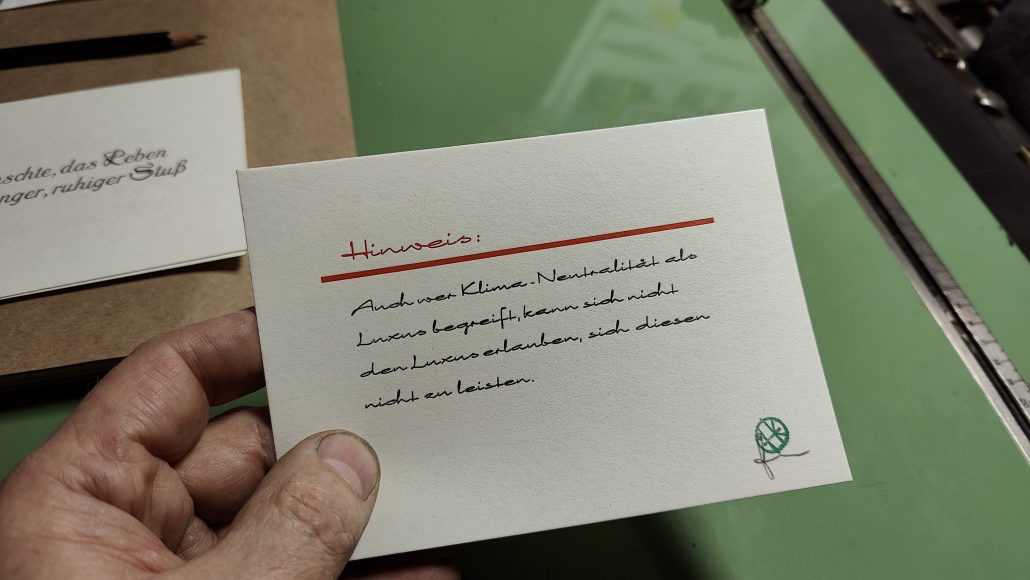 schte, das Leben
nger, ruhiger Stuß
Hinweis:
Auch wer Klima-Neutralität als
Luxus begreift, kann sich nicht
den Luxus erlauben, sich diesen
nicht zu leisten.